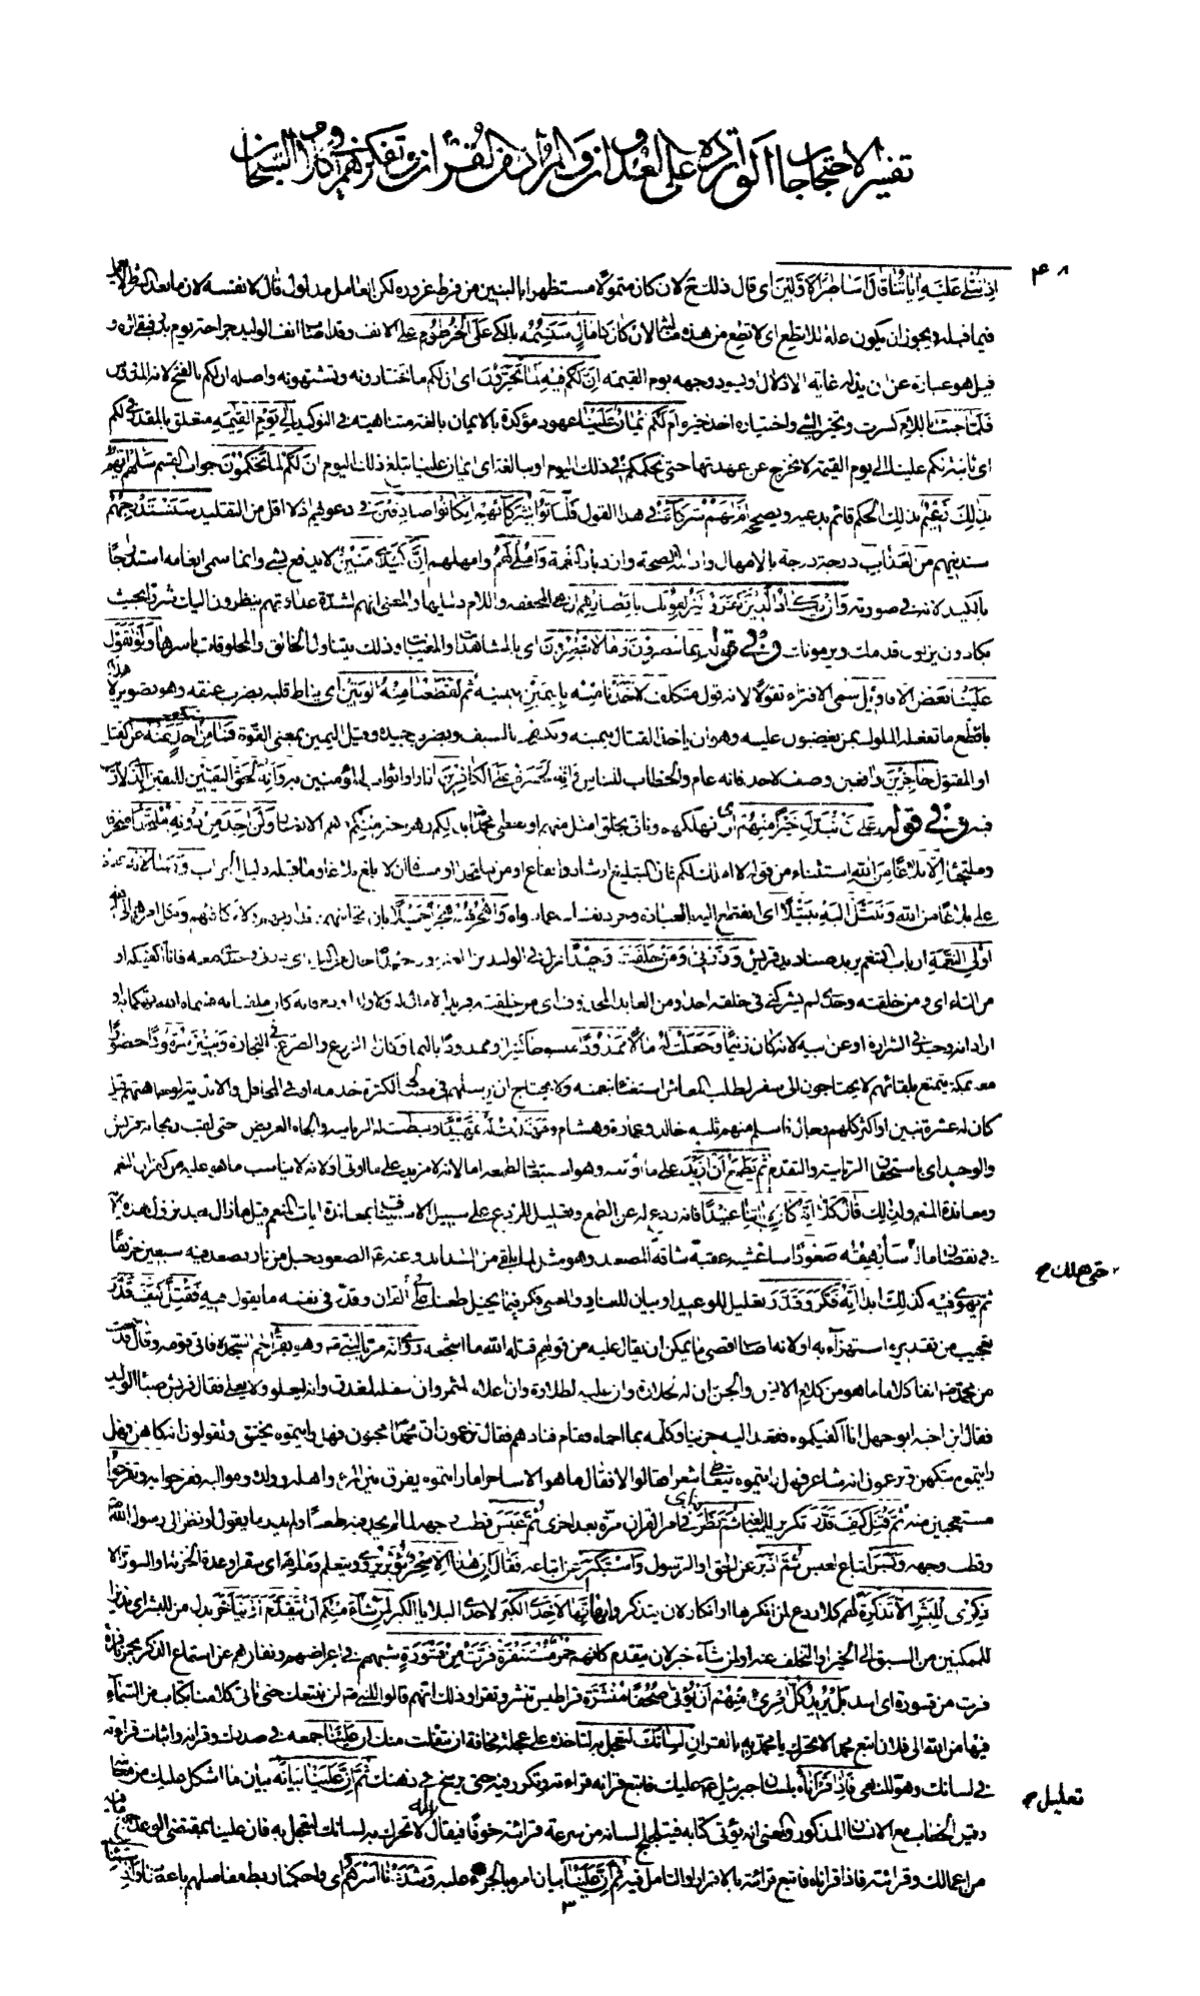 تفسير الاحتجاجات الواردة على
۴۰۸
اذا تتلى عليه اياتنا قال اساطير الاولين اى قال ذلك ح لان كان متمولا مستظهرا بالبنين من فرط غروره لكن العامل مدلول قال لا نفسه لان ما بعد الشرط لا يعمل
فيما قبله ويجوز ان يكون علة للا تطع اى لا تطع من هذه مثالبه لان كان ذا مال سنسمه بالكى على الخرطوم على الانف وقد اصاب انف الوليد جراحة يوم بدر فبقى اثره و
قيل هو عبارة عن ان يذله غاية الاذلال او يسود وجهه يوم القيمة ان لكم فيه لما تخيرون اى ان لكم ما تختارونه وتشتهونه واصله ان لكم بالفتح لانه المدروس
فلما جئت باللام كسرت وتخير الشئ واختياره اخذ خيره ام لكم ايمان علينا عهود مؤكدة بالايمان بالغة متناهية فى التوكيد الى يوم القيمة متعلق بالمقدر فى لكم
اى ثابتة لكم علينا الى يوم القيمة لا نخرج عن عهدتها حتى نحكمكم فى ذلك اليوم او ببالغة اى ايمان علينا تبلغ ذلك اليوم ان لكم لما تحكمون جواب القسم سلهم ايهم
بذلك زعيم بذلك الحكم قائم يدعيه ويصححه ام لهم شركاء فى هذا القول فليأتوا بشركائهم ان كانوا صادقين فى دعويهم اذ لا اقل من التقليد سنستدرجهم
سندنيهم من العذاب درجة درجة بالامهال وادامة الصحة وازدياد النعمة واملى لهم وامهلهم ان كيدى متين لا يدفع بشئ وانما سمى انعامه استدراجا
بالكيد لانه فى صورته وان يكاد الذين كفروا ليزلقونك بابصارهم ان هى المخففة واللام دليلها والمعنى انهم لشدة عداوتهم ينظرون اليك شزرا بحيث
يكادون يزلون قدمك ويرمونك وفى قوله بما تبصرون وما لا تبصرون اى بالمشاهدات والمغيبات وذلك يتناول الخالق والمخلوقات باسرها ولو تقول
علينا بعض الاقاويل سمى الافتراء تقولا لانه قول متكلف لاخذنا منه باليمين بيمينه ثم لقطعنا منه الوتين اى نياط قلبه بضرب عنقه وهو تصوير لاهلاكه
بافظع ما تفعله الملوك بمن يغضبون عليه وهو ان ياخذ القتال بيمينه ويكفحه بالسيف ويضرب جيده وقيل اليمين بمعنى القوة فما منكم من احد عنه عن القتل
او المقتول حاجزين دافعين وصف لاحد فانه عام والخطاب للناس وانه لحسرة على الكافرين اذا راوا ثواب المؤمنين به وانه لحق اليقين لليقين الذى لا ريب
فيه وفى قوله على ان نبدل خيرا منهم اى نهلكهم وناتى بخلق امثل منهم او نعطى محمدا بدلكم من هو خير منكم وهم الانصار ولن اجد من دونه ملتحدا منحرفا
وملتجئا الا بلاغا من الله استثناء من قوله لا املك لكم فان التبليغ ارشاد وانفاع او من ملتحدا
على بلاغا من الله وتبتل اليه تبتيلا اى انقطع اليه بالعبادة وجرد نفسك عما سواه واهجرهم هجرا جميلا بان تجانبهم وتداريهم ولا تكافهم وتكل امرهم الى الله
اولى النعمة ارباب التنعم يريد صناديد قريش وذرنى ومن خلقت وحيدا نزل فى الوليد بن المغيرة ووحيدا حال من الياء اى ذرنى وحدى معه فانا اكفيكه او
من التاء اى ومن خلقته وحدى لم يشركنى فى خلقه احد او من العائد المحذوف اى من خلقته فريدا لا مال له ولا ولد او ذم فانه كان ملقبا به فسماه الله تهكما به او
ارادة انه وحيد فى الشرارة او عن ابيه لانه كان زنيما وجعلت له مالا ممدودا مبسوطا كثيرا او ممدودا بالنماء وكان له الزرع والضرع والتجارة وبنين شهودا حضورا
معه بمكة يتمتع بلقائهم لا يحتاجون الى سفر لطلب المعاش استغناء بنعمته ولا يحتاج ان يرسلهم فى مصالحه لكثرة خدمه او فى المحافل والاندية لوجاهتهم قيل
كان له عشرة بنين او اكثر كلهم رجال فاسلم منهم ثلثة خالد وعمارة وهشام ومهدت له تمهيدا وبسطت له الرياسة والجاه العريض حتى لقب ريحانة قريش
والوحيد اى باستحقاق الرياسة والتقدم ثم يطمع ان ازيد على ما اوتيه وهو استبعاد لطمعه اما لانه لا مزيد على ما اوتى او لانه لا يناسب ما هو عليه من كفران النعم
ومعاندة المنعم ولذلك قال كلا انه كان لاياتنا عنيدا فانه ردع له عن الطمع وتعليل للردع على سبيل الاستيناف بمعاندة ايات المنعم قيل ما زال بعد نزول هذه الاية
فى نقصان ماله سارهقه صعودا ساغشيه عقبة شاقة المصعد وهو مثل لما يلقى من الشدائد وعنه ع الصعود جبل من نار يصعد فيه سبعين خريفا
حتى هلك صح
ثم يهوى فيه كذلك ابدا انه فكر وقدر تعليل للوعيد او بيان للعناد والمعنى فكر فيما يخيل طعنا على القران وقدر فى نفسه ما يقول فيه فقتل كيف قدر
تعجيب من تقديره استهزاء به او لانه اصاب اقصى ما يمكن ان يقال عليه من قولهم قتله الله ما اشجعه روى انه مر بالنبى ص وهو يقرأ حم السجدة فاتى قومه وقال لقد
من محمد ص انفا كلاما ما هو من كلام الانس والجن ان له لحلاوة وان عليه لطلاوة وان اعلاه لمثمر وان اسفله لمغدق وانه ليعلو ولا يعلى فقال قريش صبأ الوليد
فقال ابن اخيه ابو جهل انا اكفيكموه فقعد اليه حزينا وكلمه بما احماه فقام فناداهم فقال تزعمون ان محمدا مجنون فهل رايتموه يخنق وتقولون انه كاهن فهل
رايتموه يتكهن وتزعمون انه شاعر فهل رايتموه يتعاطى شعرا فقالوا لا فقال ما هو الا ساحر اما رايتموه يفرق بين المرء واهله وولده ومواليه ففرحوا به وتفرقوا
متعجبين منه ثم قتل كيف قدر تكرير للمبالغة ثم نظر اى فى امر القران مرة بعد اخرى ثم عبس قطب وجهه لما لم يجد فيه طعنا ولم يدر ما يقول او نظر الى رسول الله
وقطب وجهه وبسر اتباع لعبس ثم ادبر عن الحق او الرسول واستكبر عن اتباعه فقال ان هذا الا سحر يؤثر يروى ويتعلم وما هى اى سقر او عدة الخزنة او السورة الا
ذكرى للبشر الا تذكرة لهم كلا ردع لمن انكرها او انكار لان يتذكروا بها انها لاحدى الكبر لاحدى البلايا الكبر لمن شاء منكم ان يتقدم او يتاخر بدل من للبشر اى نذيرا
للمتمكنين من السبق الى الخير او التخلف عنه او لمن شاء خبر لان يتقدم كانهم حمر مستنفرة فرت من قسورة شبههم فى اعراضهم ونفارهم عن استماع الذكر بحمر نافرة
فرت من قسورة اى اسد بل يريد كل امرئ منهم ان يؤتى صحفا منشرة قراطيس تنشر وتقرا وذلك انهم قالوا للنبى ص لن نتبعك حتى تاتى كلا منا بكتاب من السماء
فيها من الله الى فلان اتبع محمدا لا تحرك يا محمد به بالقران لسانك لتعجل به لتاخذه على عجلة مخافة ان ينفلت منك ان علينا جمعه فى صدرك وقرانه واثبات قراءته
فى لسانك وهو تعليل للنهى فاذا قراناه بلسان جبرئيل ع عليك فاتبع قرانه قراءته وتكرر فيه حتى يرسخ فى ذهنك ثم ان علينا بيانه بيان ما اشكل عليك من معانيه
تعليل صح
وقيل الخطاب مع الانسان المذكور والمعنى انه يؤتى كتابه فيتلجلج لسانه من سرعة قرائته خوفا فيقال له لا تحرك به لسانك لتعجل به فان علينا بمقتضى الوعد جمع ما فيه
من اعمالك وقرائته فاذا قراناه فاتبع قرائته بالاقرار او التامل فيه ثم ان علينا بيان امره بالجزاء عليه وشددنا اسرهم اى واحكمنا ربط مفاصلهم بالاعصاب واذا شئنا
۳